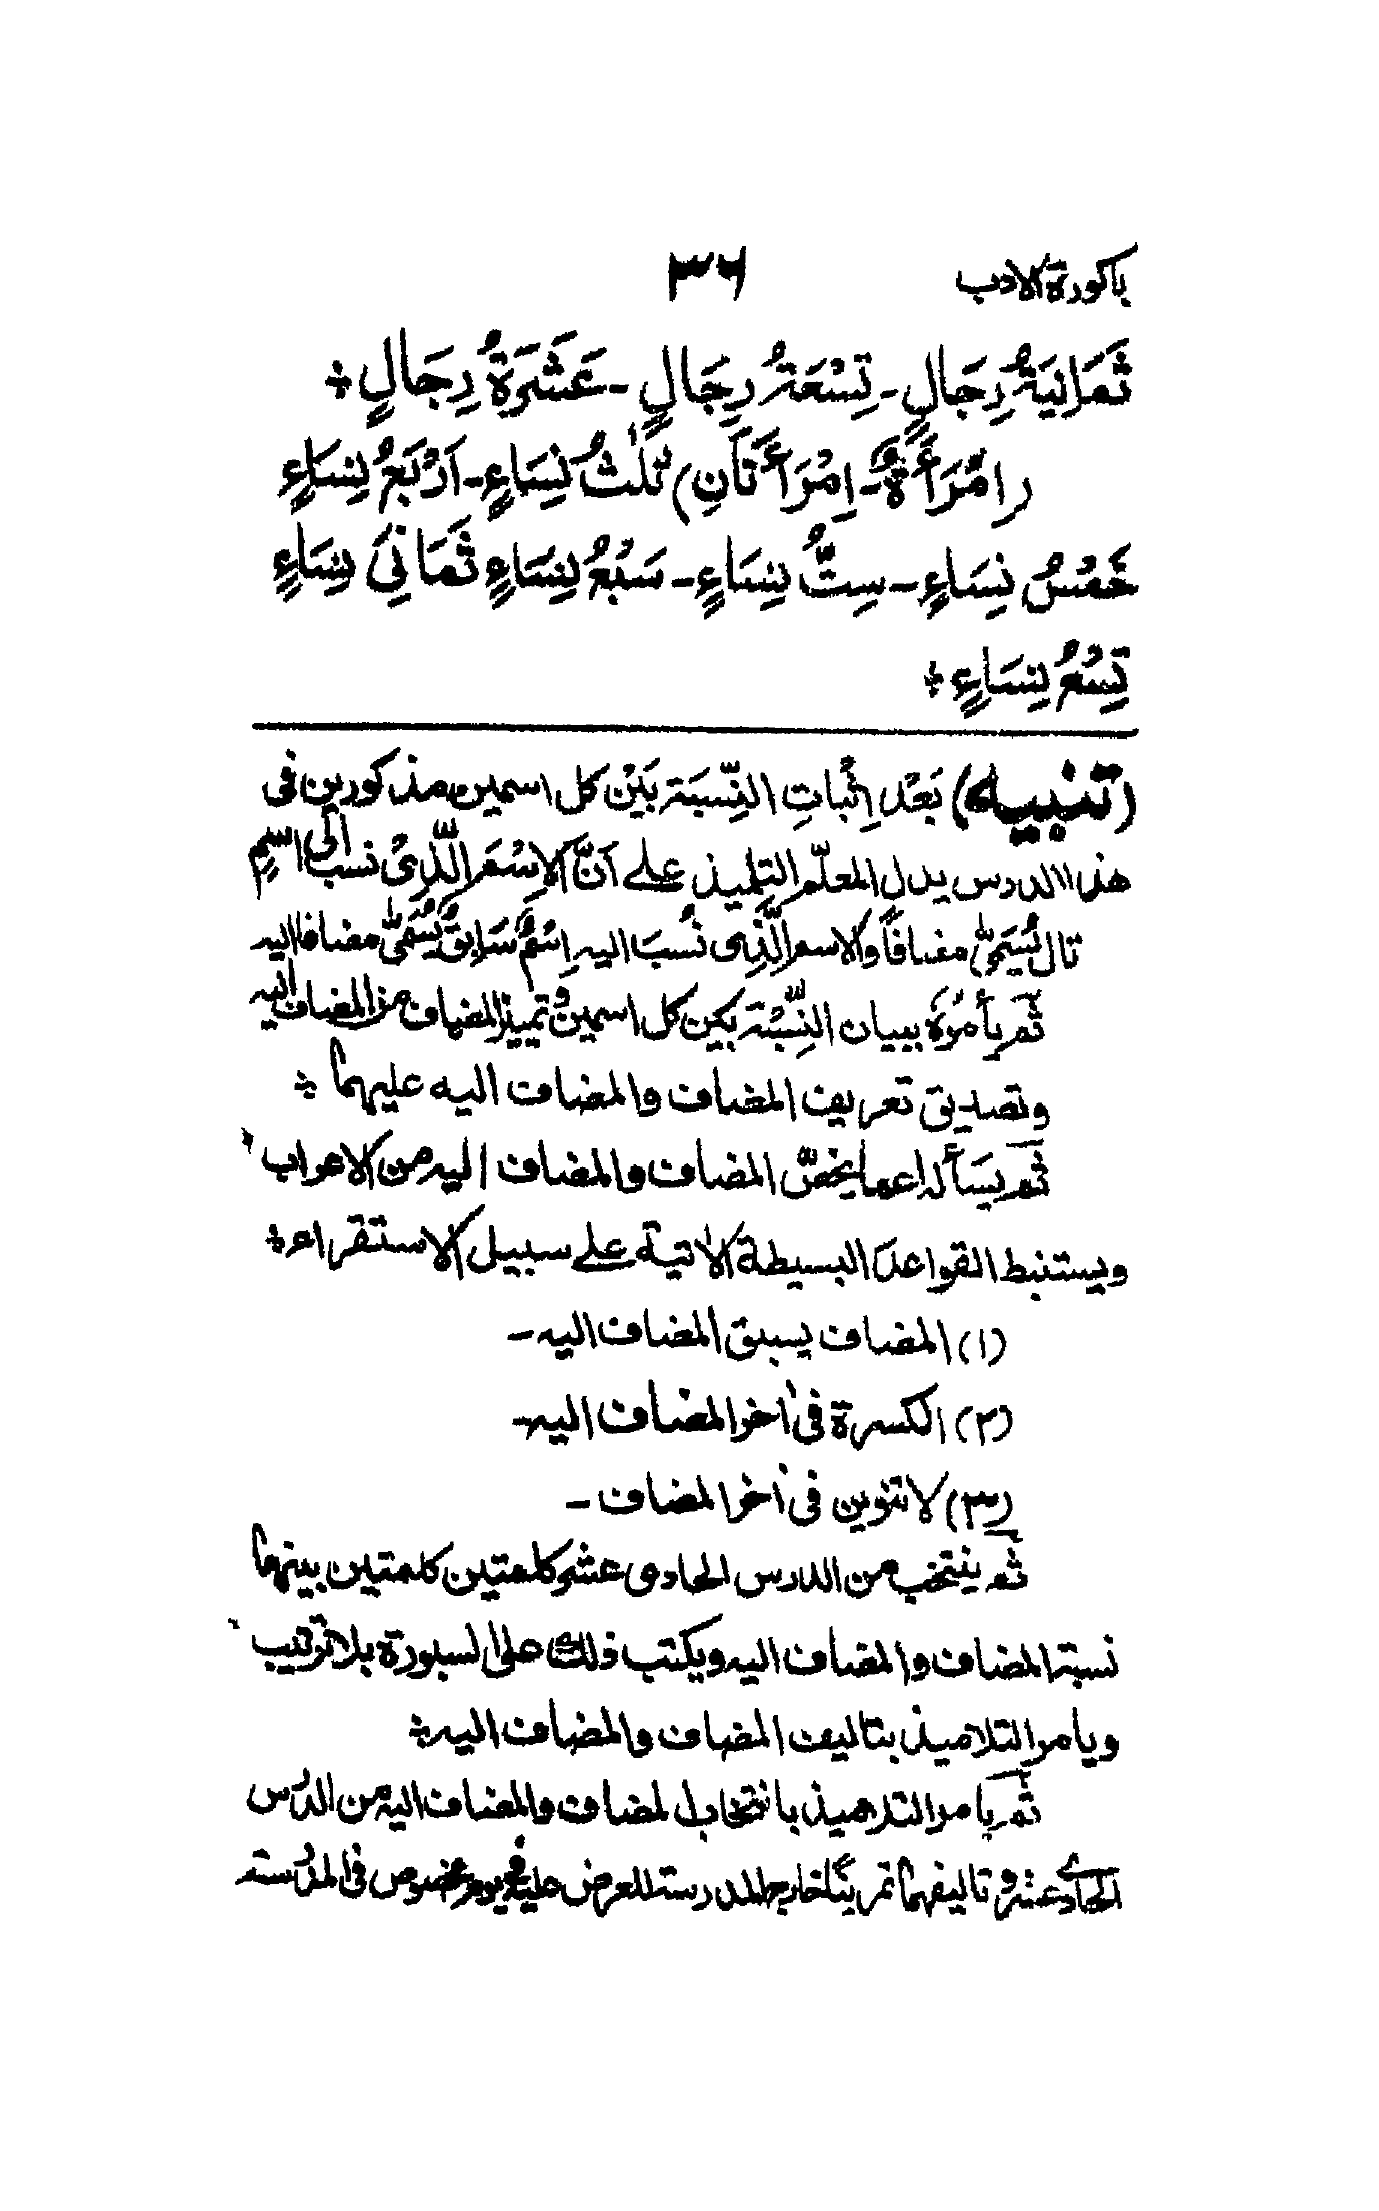 باكورة الادب ٣٦
ثَمَانِيَةُ رِجَالٍ - تِسْعَةُ رِجَالٍ - عَشَرَةُ رِجَالٍ ÷
(اِمْرَأَةٌ - اِمْرَأَتَانِ) ثَلٰثُ نِسَاءٍ - اَرْبَعُ نِسَاءٍ
خَمْسُ نِسَاءٍ - سِتُّ نِسَاءٍ - سَبْعُ نِسَاءٍ ثَمَانِيَ نِسَاءٍ
تِسْعُ نِسَاءٍ ÷
(تنبيه) بَعْدَ اِثْبَاتِ النِّسْبَةِ بَيْنَ كل اسمين مذكورين فى
هذا الدرس يدل المعلّم التلميذ على اَنَّ الاِسْمَ الَّذِىْ نسب الى اسْمٍ
تال يُسَمّٰى مضافًا والاسم الَّذِى نُسبَ اليه اِسْمٌ سَابِقٌ يُسَمّٰى مضافا اليه
ثم يأمُرُهُ ببيان النِّسْبَة بَين كل اسمين و تمييز المضاف من المضاف اليه
وتصديق تعريف المضاف والمضاف اليه عليهما ÷
ثم يَسَأله عما يخصّ المضاف والمضاف اليه من الاعراب
ويستنبط القواعد البسيطة الاٰتية على سبيل الاستقراء ÷
(١) المضاف يسبق المضاف اليه -
(٢) الكسرة فى اٰخر المضاف اليه -
(٣) لا تنوين فى اٰخر المضاف -
ثم ينتخب من الدرس الحادى عشر كلمتين كلمتين بينهما
نسبة المضاف والمضاف اليه ويكتب ذلك على السبورة بلا ترتيب
ويامر التلاميذ بتاليف المضاف والمضاف اليه ÷
ثم يامر التلاميذ بانتخاب المضاف والمضاف اليه من الدرس
الحادى عشر و تاليفهما تمرينًا خارج المدرسة للعرض عليه فى يوم مخصوص فى المدرسة